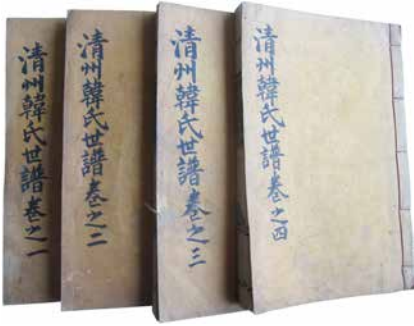 清州韓氏世譜卷之一
清州韓氏世譜卷之二
清州韓氏世譜卷之三
清州韓氏世譜卷之四